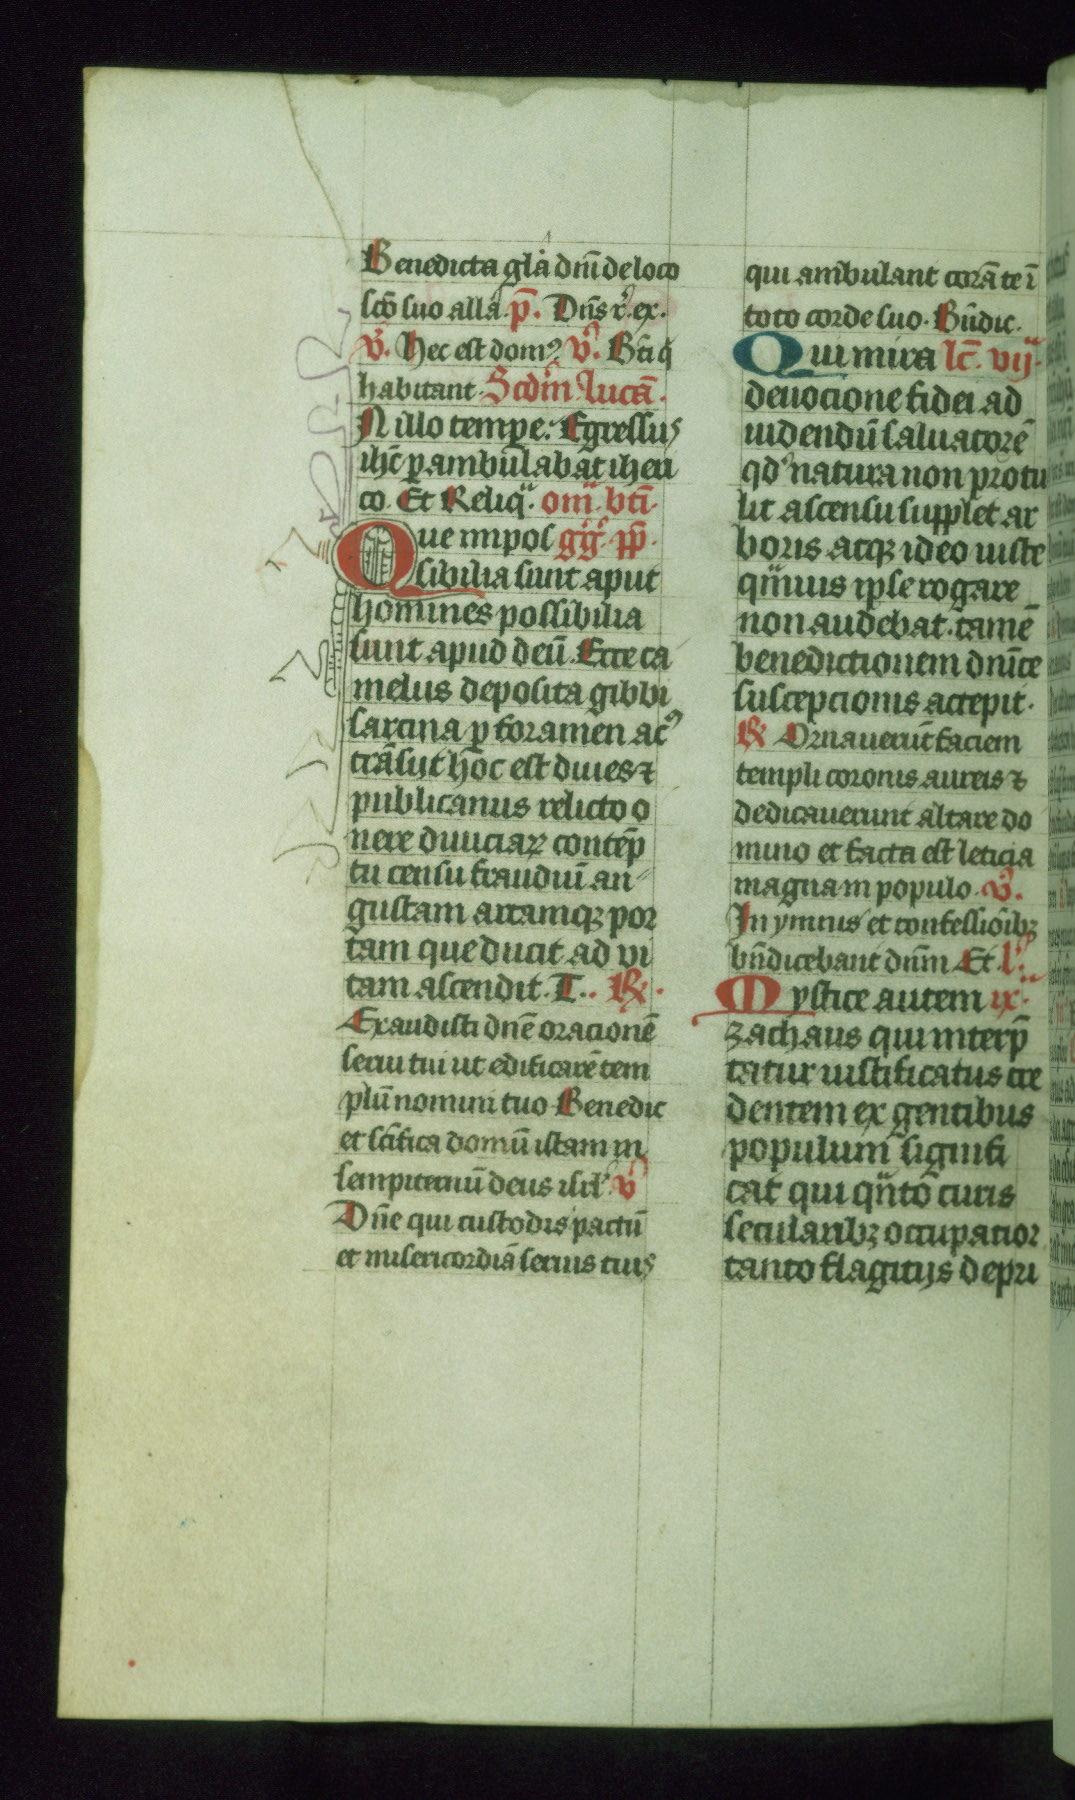 Benedicta gla dnī de loco
scō suo alla. p̄. Dn̄s r. ex.
v̊. Hec est domꝰ v̊. Bt̄i q̄
habitant. Scdm̄ lucā.
N illo tempe: Egressus
ihc̄ pambulabat iheri
co. Et Reliqͣ. omͣ. bt̄i.
Que impos gg̊. pp̄.
sibilia sunt aput
homines possibilia
sunt apud deū. Ecce ca
melus deposita gibbi
sarcina p foramen acꝰ
trāsijt hoc est diues ⁊
publicanus relicto o
nere diuiciaꝝ contēp
tu censu fraudiū an
gustam artamqꝫ por
tam que ducit ad vi
tam ascendit. T. ℟.
Exaudisti dn̄e oracionē
serui tui ut edificarē tem
plū nomini tuo Benedic
et sc̄ifica domū istam in
sempiternū deus isrl̄ v̊
Dn̄e qui custodis pactū
et misericordiā seruis tuis
qui ambulant corā te ī
toto corde suo. Bn̄dic.
Qui mira lc̄. vij.
deuocione fidei ad
uidendū saluatorē
qd̓ natura non protu
lit ascensu supplet ar
boris atqꝫ ideo iuste
qͣmuis ipse rogare
non audebat. tamē
benedictionem dn̄ice
suscepcionis accepit.
℟ Ornauerūt faciem
templi coronis aureis ⁊
dedicauerunt altare do
mino et facta est leticia
magna m populo. v̊.
In ymnis et confessiōibꝫ
bn̄dicebant dnm̄ Et l̓.
Mystice autem ix.
zachaus qui interp̄
tatur iustificatus cre
dentem ex gentibus
populum signifi
cat qui qͣntō curis
secularibꝫ occupatior
tanto flagitijs depri